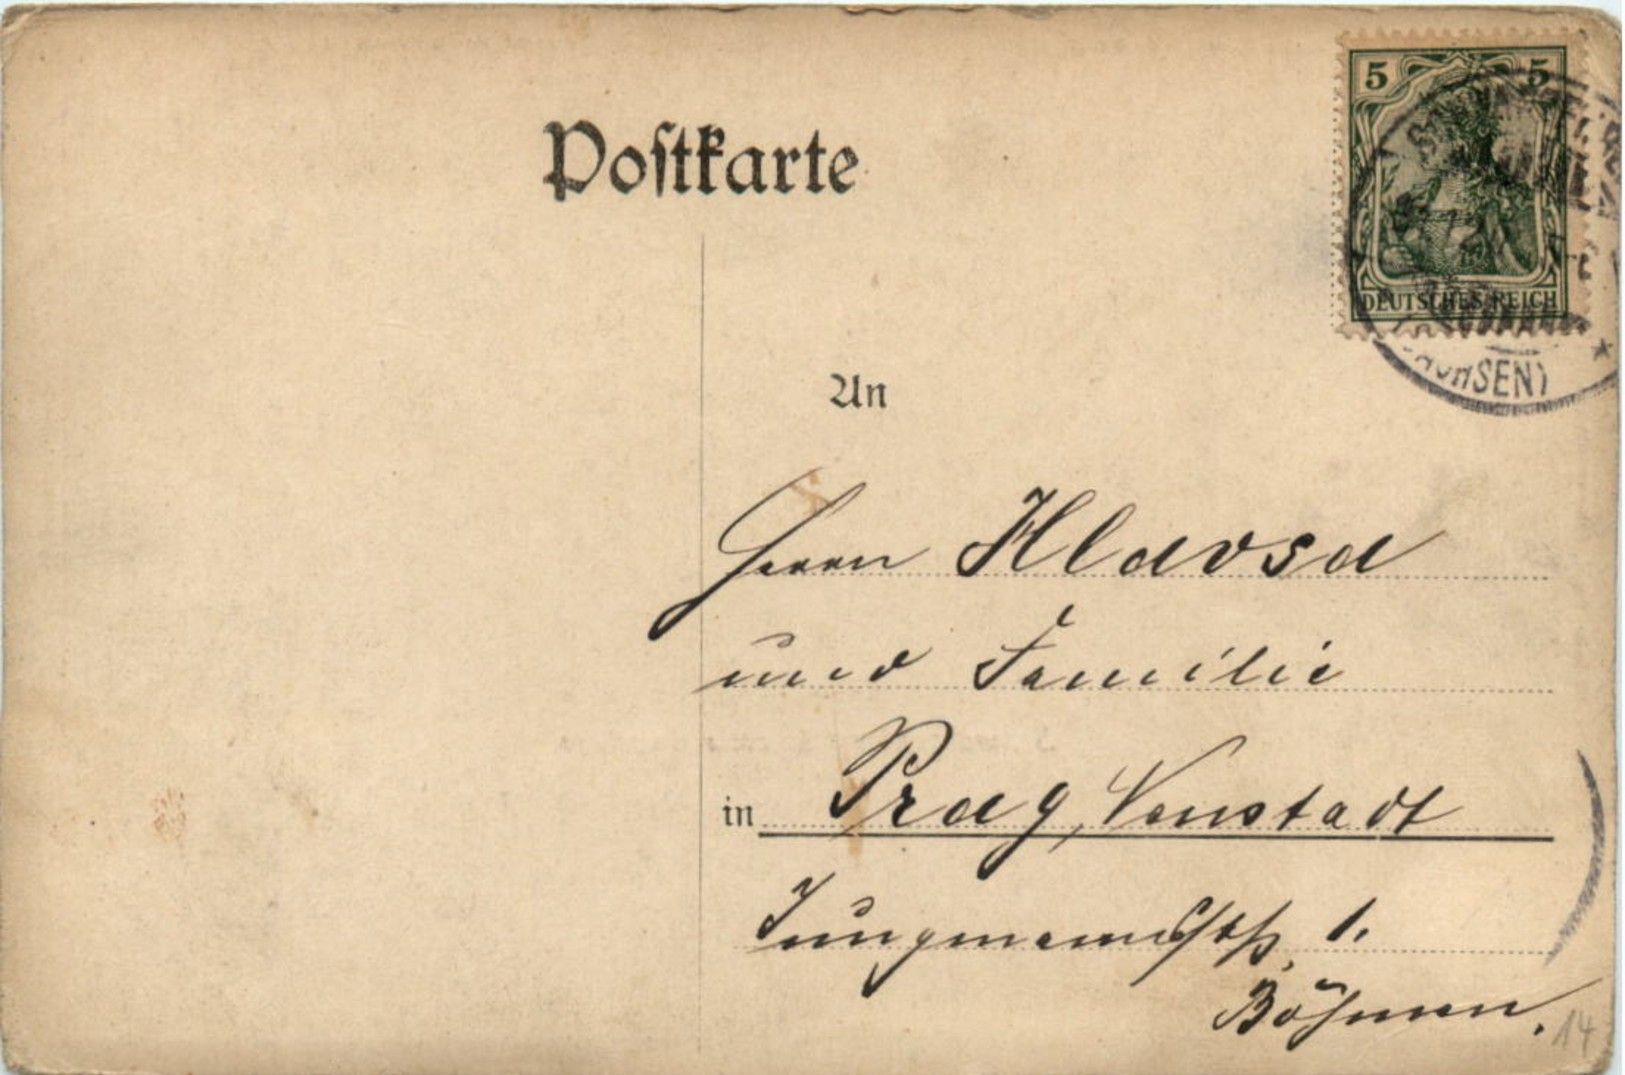 Postkarte
5 5
DEUTSCHES REICH
SACHSEN)
An
Herrn Hlavsa
und Familie
in Prag, Neustadt
Jungmannstr. 1.
Böhmen.
14